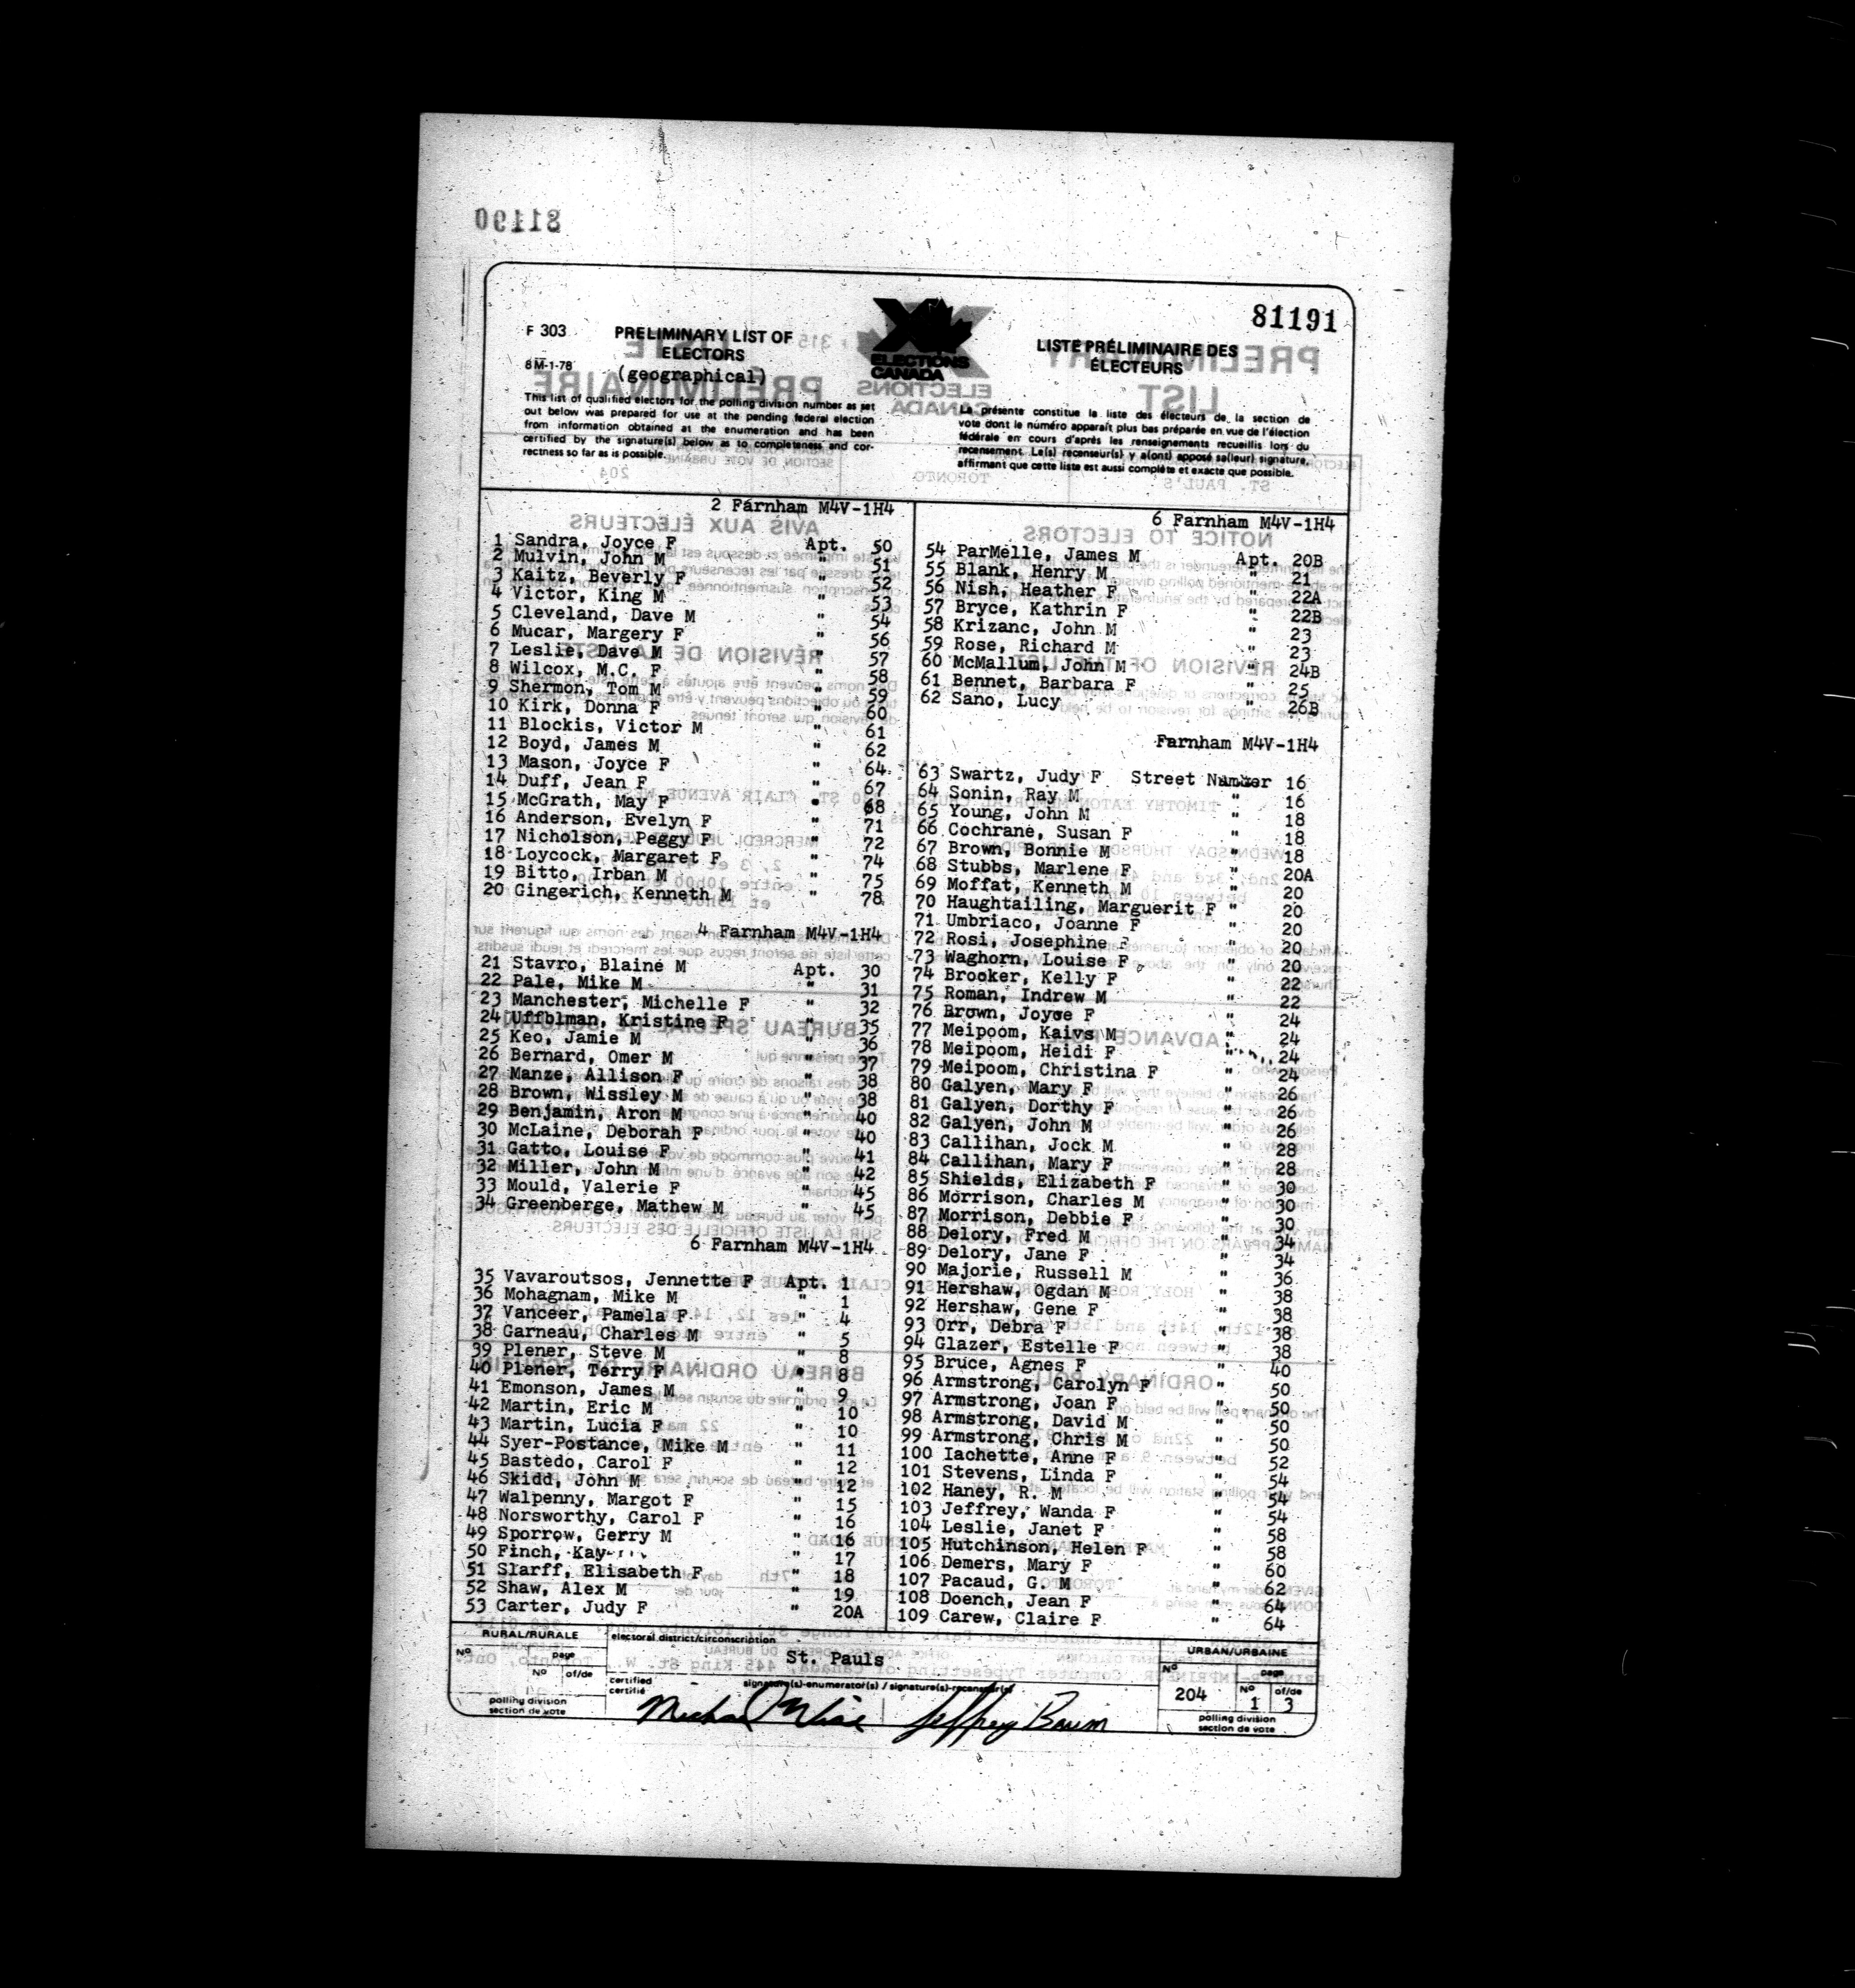 81190
81191
F 303
8M-1-78
PRELIMINARY LIST OF
ELECTORS
(geographical)
ELECTIONS
CANADA
LISTE PRÉLIMINAIRE DES
ÉLECTEURS
This list of qualified electors for the polling division number as set
out below was prepared for use at the pending federal election
from information obtained at the enumeration and has been
certified by the signature(s) below as to completeness and cor-
rectness so far as is possible.
La présente constitue la liste des électeurs de la section de
vote dont le numéro apparaît plus bas préparée en vue de l'élection
fédérale en cours d'après les renseignements recueillis lors du
recensement. Le(s) recenseur(s) y a(ont) apposé sa(leur) signature,
affirmant que cette liste est aussi complète et exacte que possible.
2 Farnham M4V-1H4
1 Sandra, Joyce F Apt. 50
2 Mulvin, John M " 51
3 Kaitz, Beverly F " 52
4 Victor, King M " 53
5 Cleveland, Dave M " 54
6 Mucar, Margery F " 56
7 Leslie, Dave M " 57
8 Wilcox, M.C. F " 58
9 Shermon, Tom M " 59
10 Kirk, Donna F " 60
11 Blockis, Victor M " 61
12 Boyd, James M " 62
13 Mason, Joyce F " 64
14 Duff, Jean F " 67
15 McGrath, May F " 68
16 Anderson, Evelyn F " 71
17 Nicholson, Peggy F " 72
18 Loycock, Margaret F " 74
19 Bitto, Irban M " 75
20 Gingerich, Kenneth M " 78
4 Farnham M4V-1H4
21 Stavro, Blaine M Apt. 30
22 Pale, Mike M " 31
23 Manchester, Michelle F " 32
24 Uffblman, Kristine F " 35
25 Keo, Jamie M " 36
26 Bernard, Omer M " 37
27 Manze, Allison F " 38
28 Brown, Wissley M " 38
29 Benjamin, Aron M " 40
30 McLaine, Deborah F " 40
31 Gatto, Louise F " 41
32 Miller, John M " 42
33 Mould, Valerie F " 45
34 Greenberge, Mathew M " 45
6 Farnham M4V-1H4
35 Vavaroutsos, Jennette F Apt. 1
36 Mohagnam, Mike M " 1
37 Vanceer, Pamela F " 4
38 Garneau, Charles M " 5
39 Plener, Steve M " 8
40 Plener, Terry F " 8
41 Emonson, James M " 9
42 Martin, Eric M " 10
43 Martin, Lucia F " 10
44 Syer-Postance, Mike M " 11
45 Bastedo, Carol F " 12
46 Skidd, John M " 12
47 Walpenny, Margot F " 15
48 Norsworthy, Carol F " 16
49 Sporrow, Gerry M " 16
50 Finch, Kay " 17
51 Slarff, Elisabeth F " 18
52 Shaw, Alex M " 19
53 Carter, Judy F " 20A
6 Farnham M4V-1H4
54 ParMelle, James M Apt. 20B
55 Blank, Henry M " 21
56 Nish, Heather F " 22A
57 Bryce, Kathrin F " 22B
58 Krizanc, John M " 23
59 Rose, Richard M " 23
60 McMallum, John M " 24B
61 Bennet, Barbara F " 25
62 Sano, Lucy " 26B
Farnham M4V-1H4
63 Swartz, Judy F Street Number 16
64 Sonin, Ray M " 16
65 Young, John M " 18
66 Cochrane, Susan F " 18
67 Brown, Bonnie M " 18
68 Stubbs, Marlene F " 20A
69 Moffat, Kenneth M " 20
70 Haughtailing, Marguerit F " 20
71 Umbriaco, Joanne F " 20
72 Rosi, Josephine F " 20
73 Waghorn, Louise F " 20
74 Brooker, Kelly F " 22
75 Roman, Indrew M " 22
76 Brown, Joyce F " 24
77 Meipoom, Kaivs M " 24
78 Meipoom, Heidi F " 24
79 Meipoom, Christina F " 24
80 Galyen, Mary F " 26
81 Galyen, Dorthy F " 26
82 Galyen, John M " 26
83 Callihan, Jock M " 28
84 Callihan, Mary F " 28
85 Shields, Elizabeth F " 30
86 Morrison, Charles M " 30
87 Morrison, Debbie F " 30
88 Delory, Fred M " 34
89 Delory, Jane F " 34
90 Majorie, Russell M " 36
91 Hershaw, Ogdan M " 38
92 Hershaw, Gene F " 38
93 Orr, Debra F " 38
94 Glazer, Estelle F " 38
95 Bruce, Agnes F " 40
96 Armstrong, Carolyn F " 50
97 Armstrong, Joan F " 50
98 Armstrong, David M " 50
99 Armstrong, Chris M " 50
100 Iachette, Anne F " 52
101 Stevens, Linda F " 54
102 Haney, R. M " 54
103 Jeffrey, Wanda F " 54
104 Leslie, Janet F " 58
105 Hutchinson, Helen F " 58
106 Demers, Mary F " 60
107 Pacaud, G. M " 62
108 Doench, Jean F " 64
109 Carew, Claire F " 64
RURAL/RURALE
Nº
page
Nº of/de
polling division
section de vote
electoral district/circonscription
St. Pauls
certified
certifié
signature(s)-enumerator(s) / signature(s)-recenseur(s)
Jeffrey Baum
URBAN/URBAINE
Nº
204
page
Nº of/de
1 3
polling division
section de vote